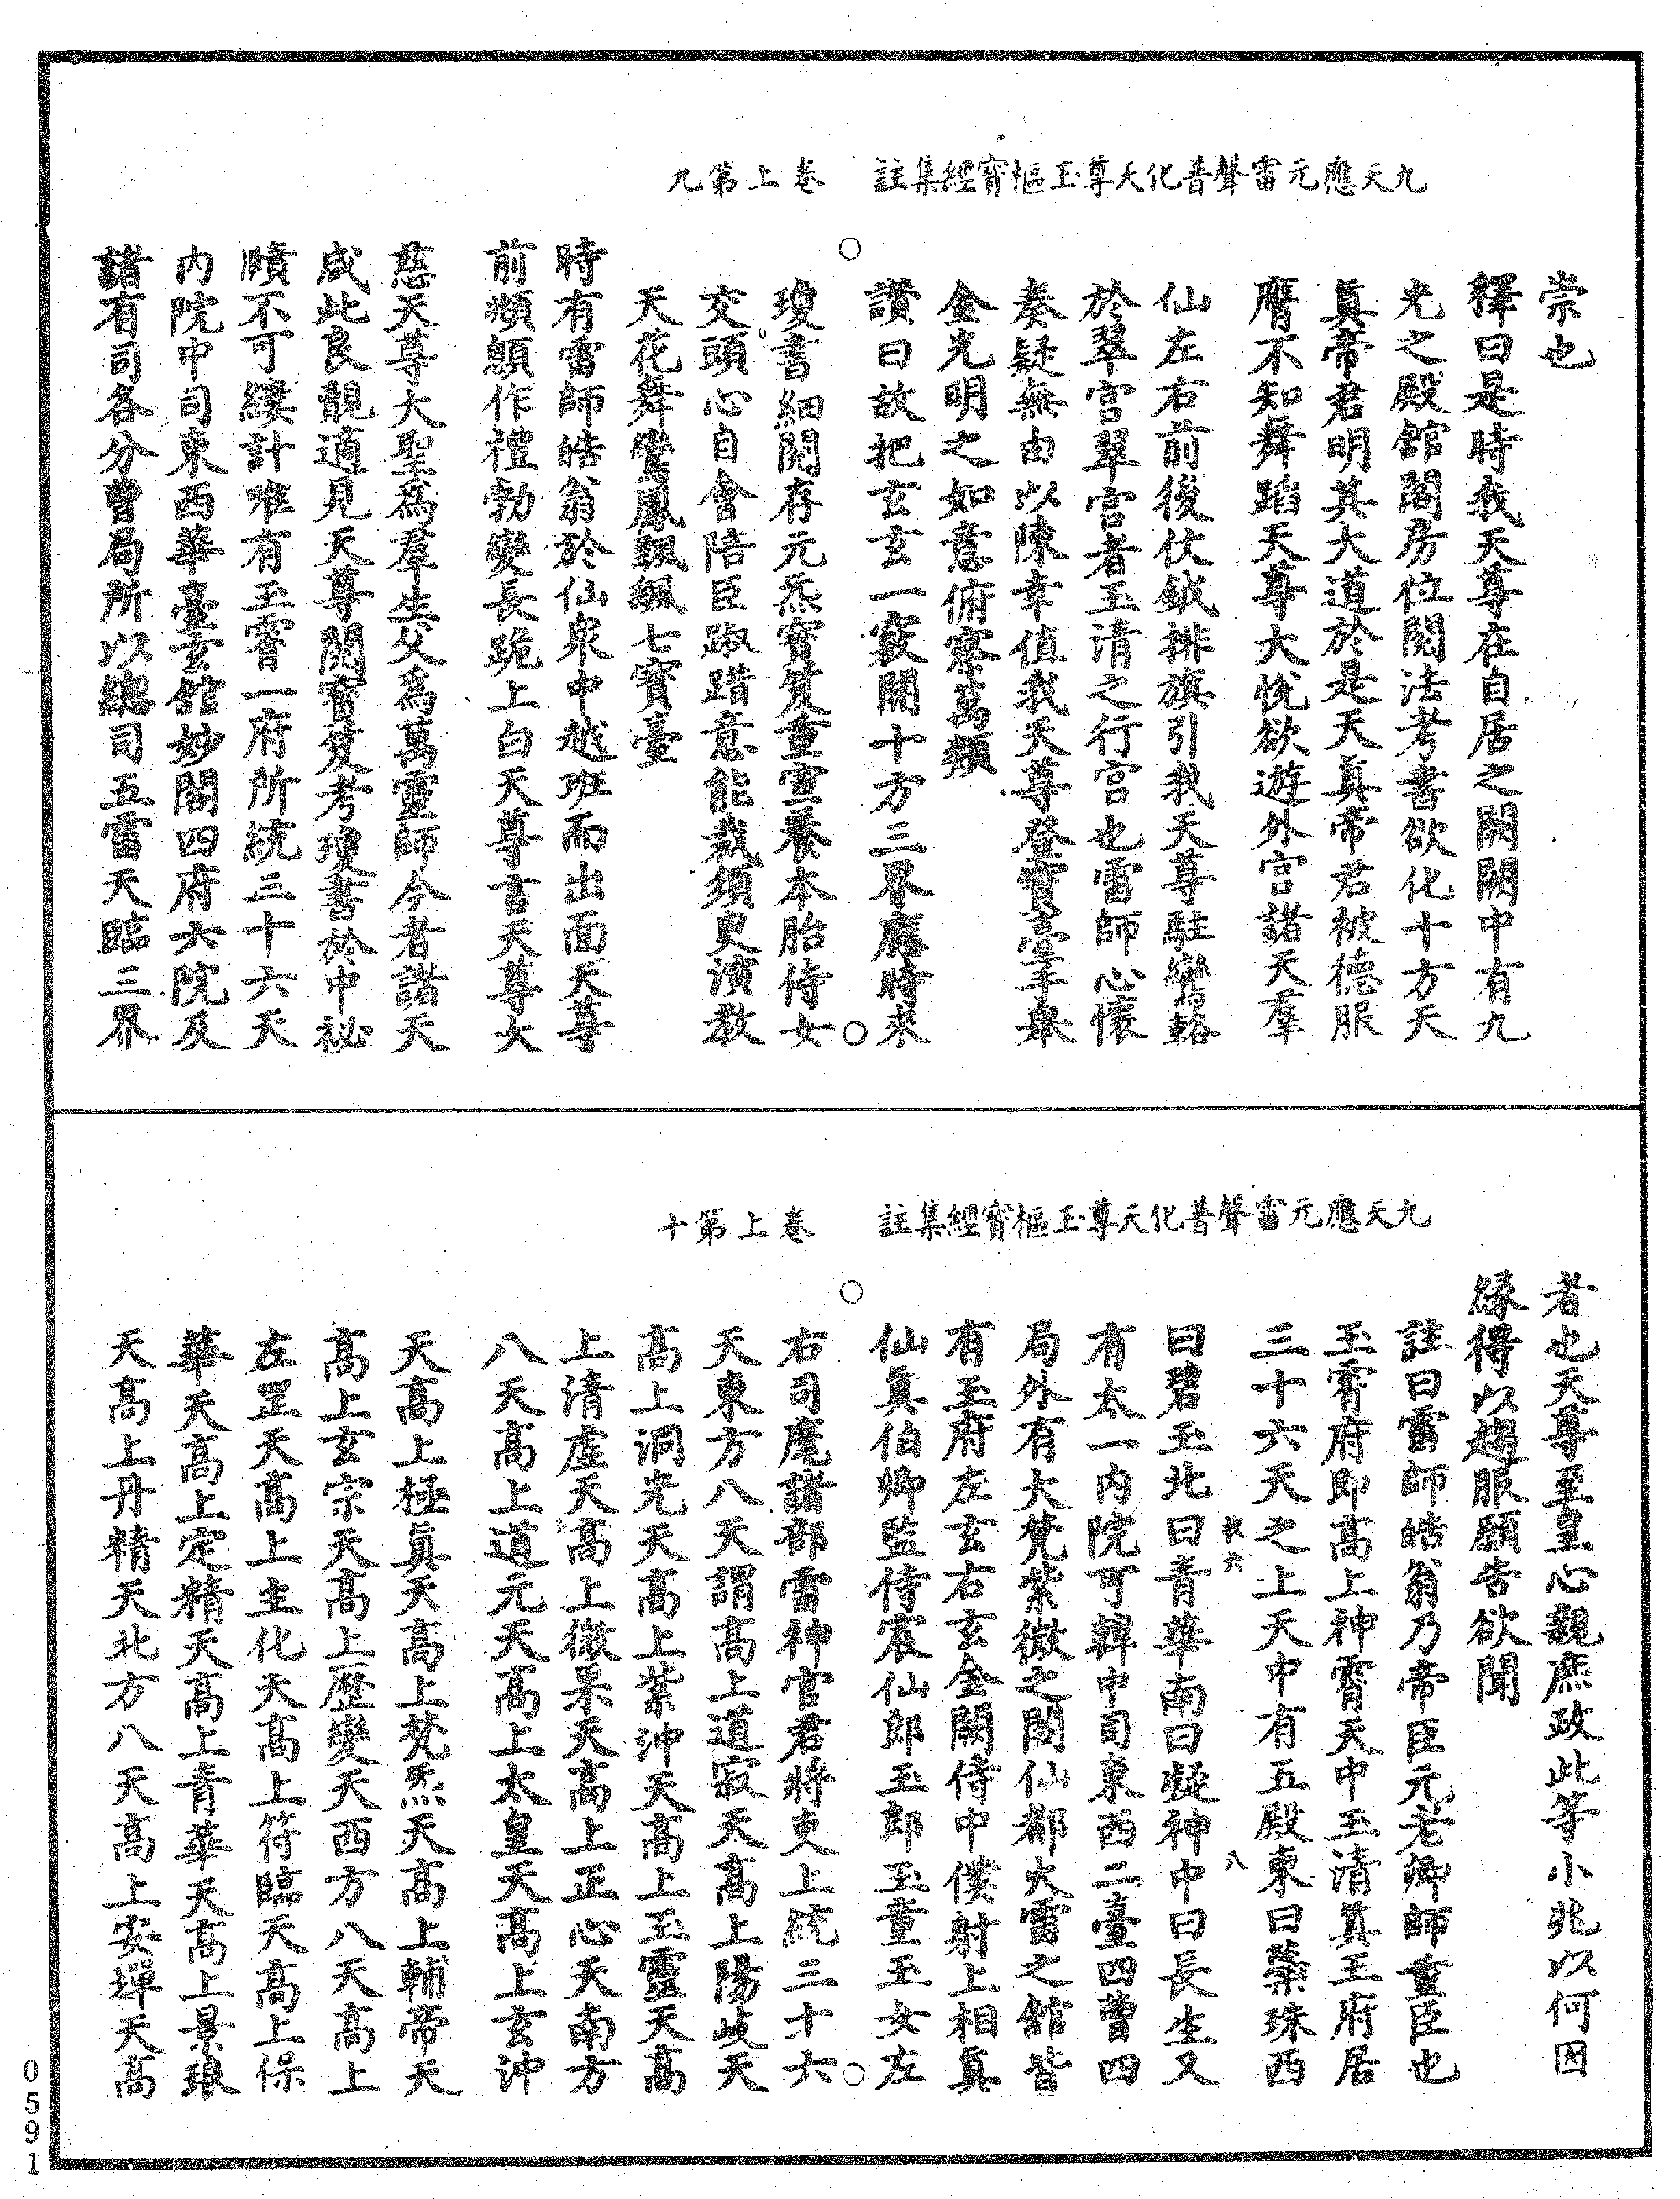 九天應元雷聲普化天尊玉樞寶經集註 卷上第九
崇也
釋曰是時我天尊在自居之闕闕中有九
光之殿館閣房位閱法考書欲化十方天
眞帝君明其大道於是天眞帝君被德服
膺不知舞蹈天尊大悅欲遊外宮諸天羣
仙左右前後仗鉞排旗引我天尊駐鑾輅
於翠宮翠宮者玉清之行宮也雷師心懷
奏疑無由以陳幸值我天尊登寶臺手舉
金光明之如意俯察萬類
讚曰故把玄玄一竅開十方三界應時來
瓊書細閱存元炁寶笈重宣養本胎侍女
交頭心自會陪臣踧踖意能裁須更演敎
天花舞鸞鳳飄颻七寶臺
時有雷師皓翁於仙衆中越班而出面天尊
前頫顙作禮勃變長跪上白天尊言天尊大
慈天尊大聖爲羣生父爲萬靈師今者諸天
咸此良覿適見天尊閱寶笈考瓊書於中祕
賾不可縷計唯有玉霄一府所統三十六天
内院中司東西華臺玄館妙閣四府六院及
諸有司各分曹局所以總司五雷天臨三界
九天應元雷聲普化天尊玉樞寶經集註 卷上第十
者也天尊至皇心親庶政此等小兆以何因
緣得以趨服願告欲聞
註曰雷師皓翁乃帝臣元老卿師重臣也
玉霄府即高上神霄天中玉清眞王府居
三十六天之上天中有五殿東曰蘂珠西
曰碧玉北曰青華南曰凝神中曰長生又
有太一内院可韓中司東西二臺四曹四
局外有大梵紫微之閣仙都火雷之館皆
有玉府左玄右玄金闕侍中僕射上相眞
仙眞伯卿監侍宸仙郎玉郎玉童玉女左
右司麾諸部雷神官君將吏上統三十六
天東方八天謂高上道寂天高上陽岐天
高上洞光天高上紫沖天高上玉靈天高
上清虛天高上微果天高上正心天南方
八天高上道元天高上太皇天高上玄沖
天高上極眞天高上梵炁天高上輔帝天
高上玄宗天高上歷變天西方八天高上
左罡天高上主化天高上符臨天高上保
華天高上定精天高上青華天高上景琅
天高上丹精天北方八天高上安墠天高
八
0591